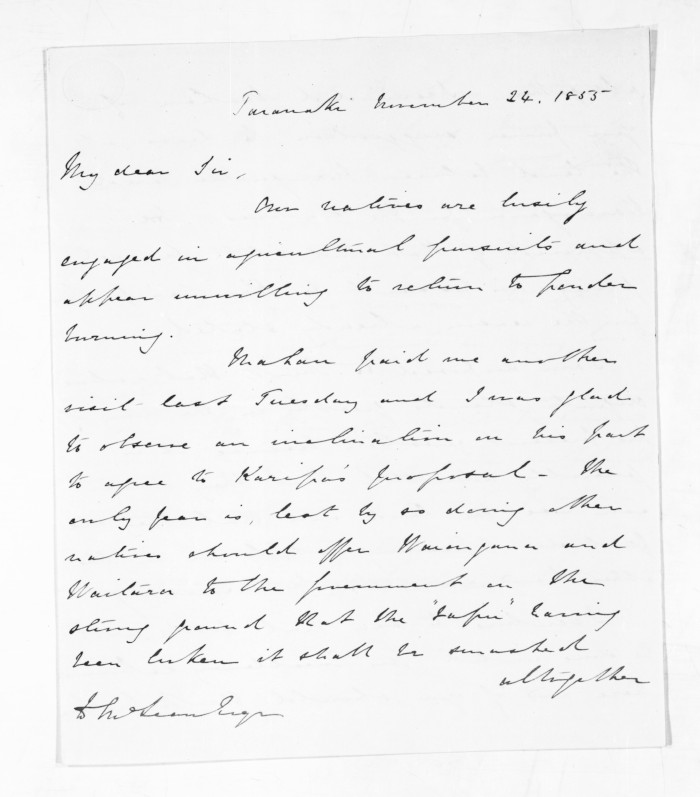 Taranaki November 24. 1855
My dear Sir,
Our natives are busily
engaged in agricultural pursuits and
appear unwilling to return to powder
burning.
Mahau paid me another
visit last Tuesday and I was glad
to observe an inclination on his part
to agree to Karipa's proposal - The
only fear is, lest by so doing other
natives should offer Waiongana and
Waitara to the government on the
strong ground that the "tapu" having
been broken it shall be smashed
altogether
D McLean Esqr